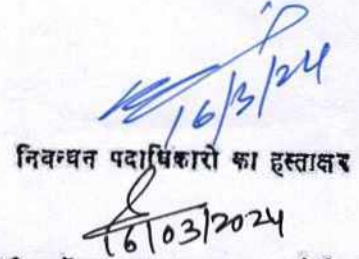 16/3/24
निवन्धन पदाधिकारी का हस्ताक्षर
16/03/2024